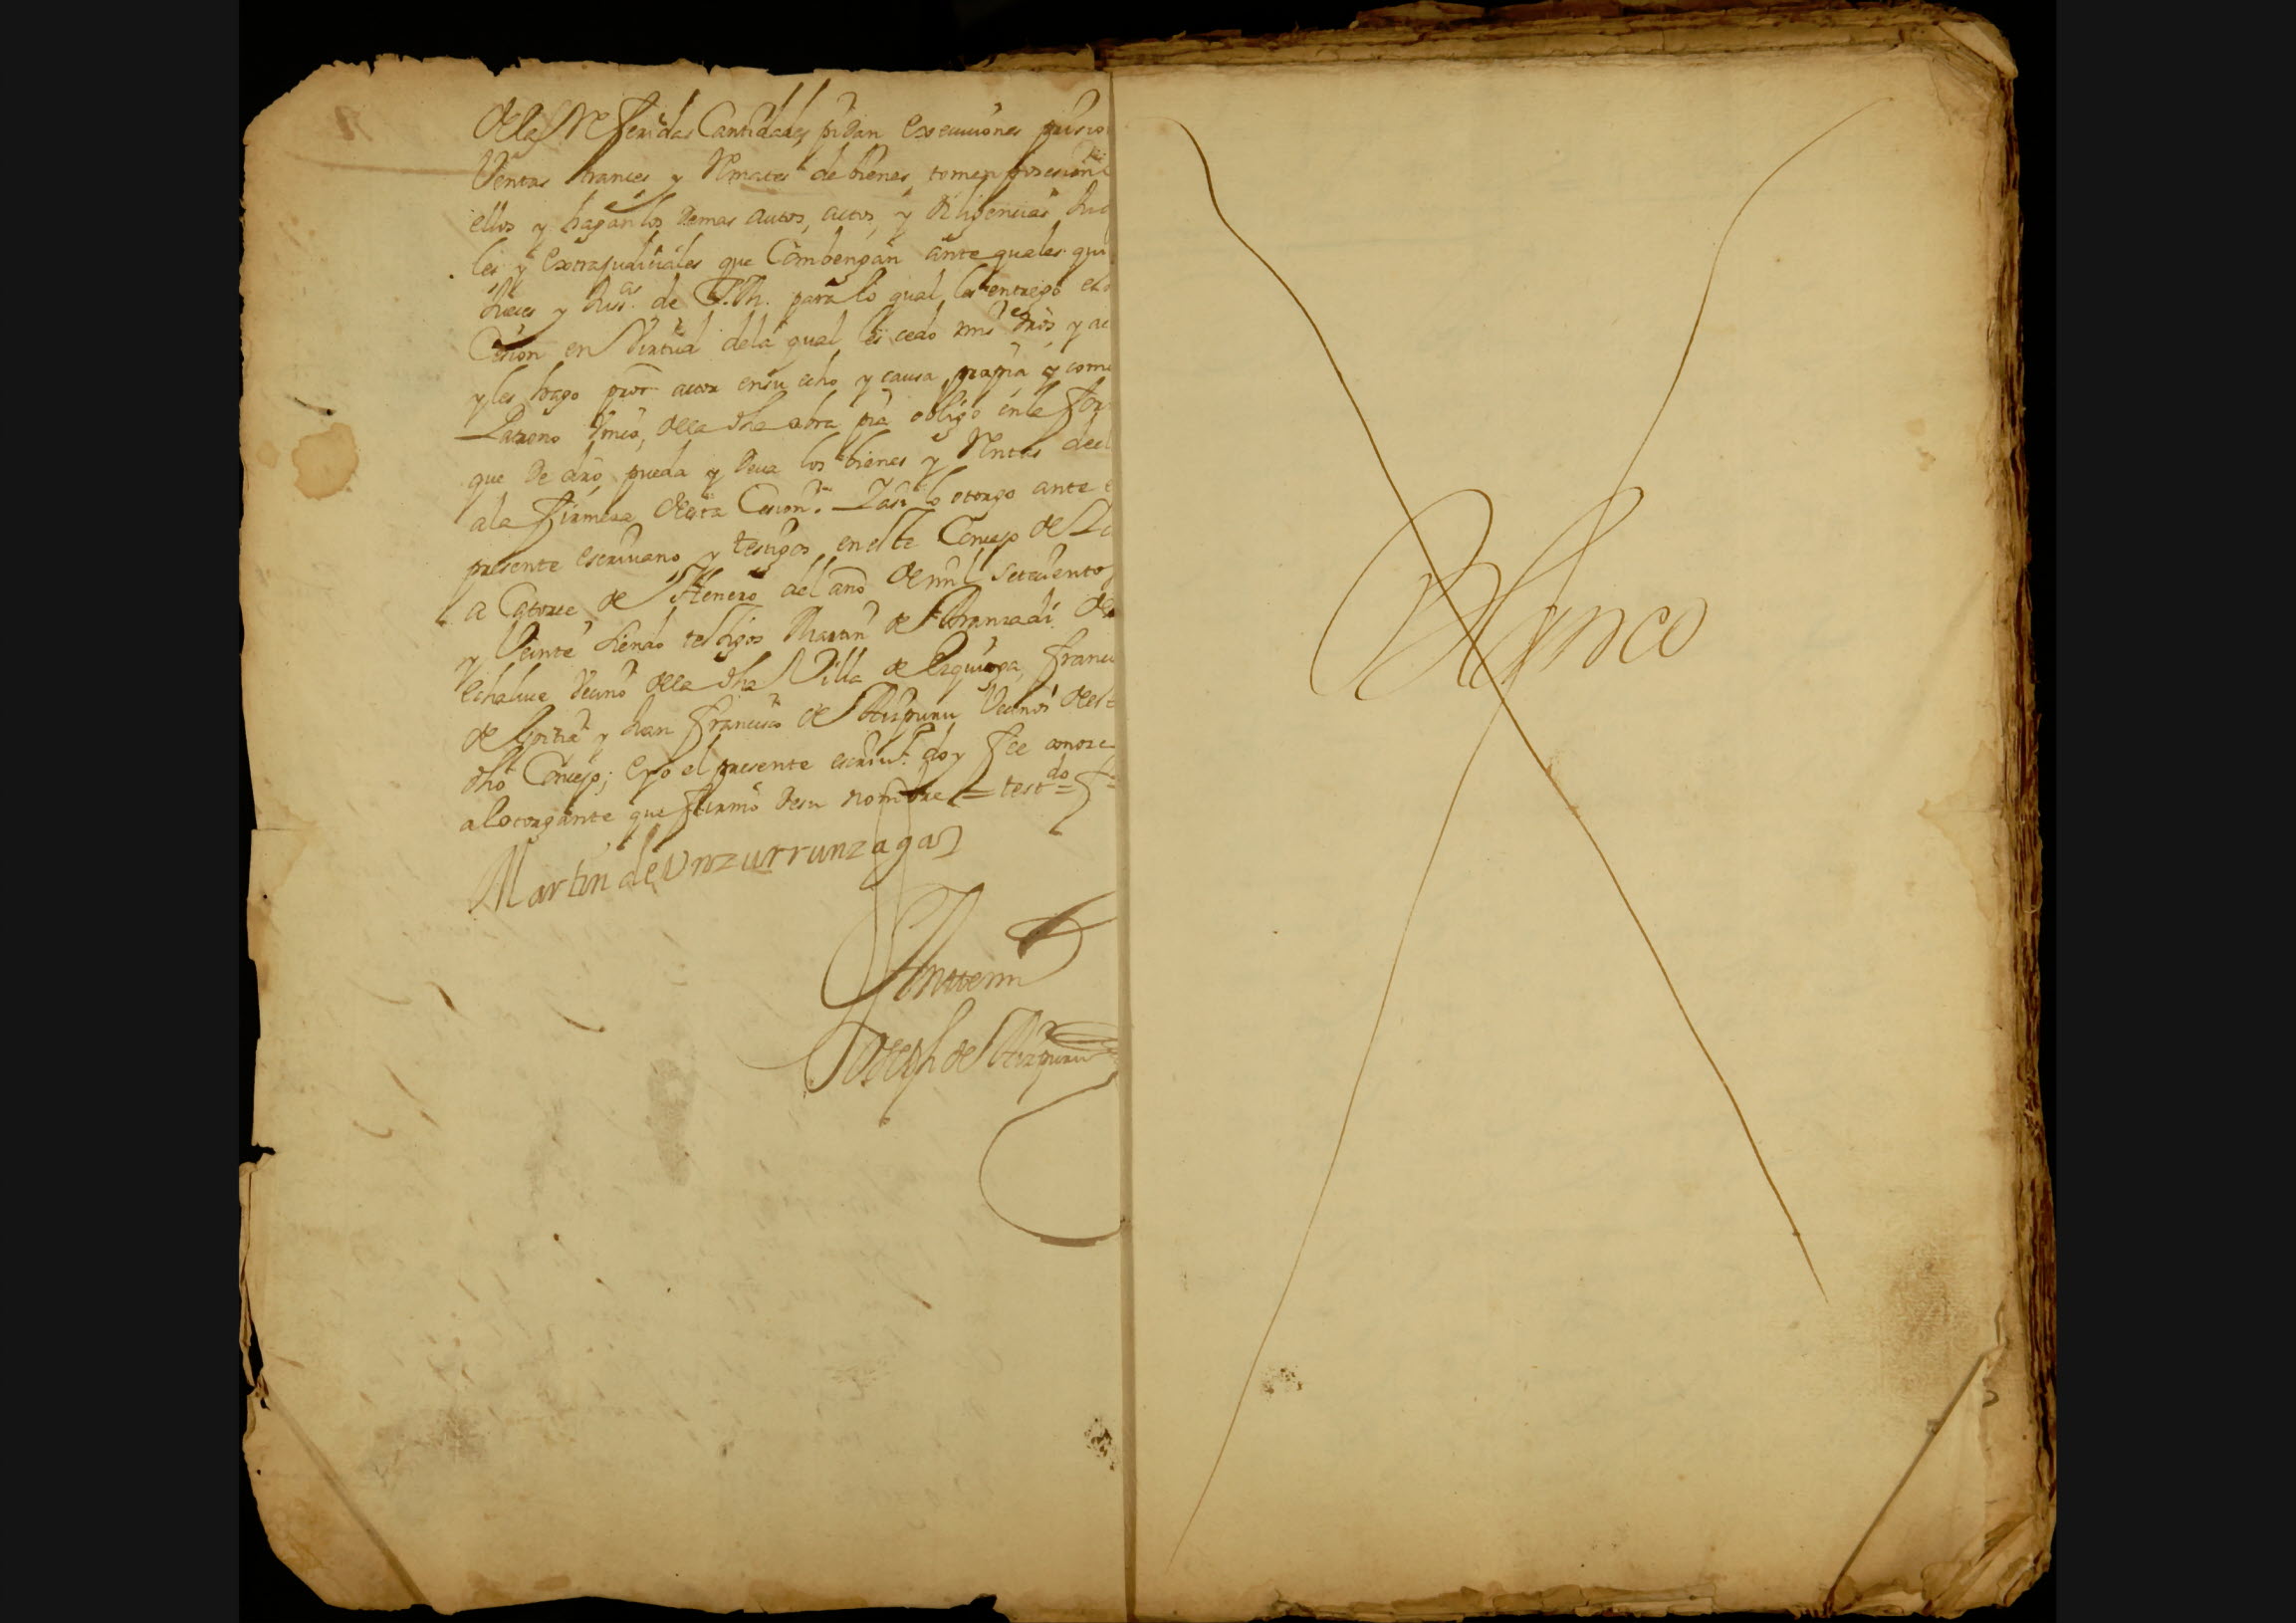 delas Referidas Cantidades, pidan execuciones prisio
Ventas trances y Remates de bienes, tomen posesion d
ellos y hagan los demas autos, actos, y diligencias Jud
les y extrajudiciales que Combengan ante quales qui
Jueces y Juss.as de S.M. para lo qual les entrego esta
Cesion en Virtud dela qual les cedo mis dros y ac
y les hago pror actor en su echo y causa propia y como
Patrono Unico, dela dha obra pia obligo en la for
que de dro pueda y deva los bienes y Rentas dell
ala firmeza desta Cesion. Y asi lo otorgo ante e
presente escrivano y testigos en este Concejo de
a Catorce de Henero del año de mil setecientos
y Veinte siendo testigos Martin de Aranzadi de
Echaluce Vecino dela dha Villa de Ezquioga, Franco
de Goitia y Juan Francisco de Aizpuru Vecinos deste
dho Concejo; e yo el presente escriv.o doy fee conozco
al otorgante que firmo de su nombre = test.do =
Martin de Unzurrunzaga
Ante mi
Joseph de Aizpuru
Blanco